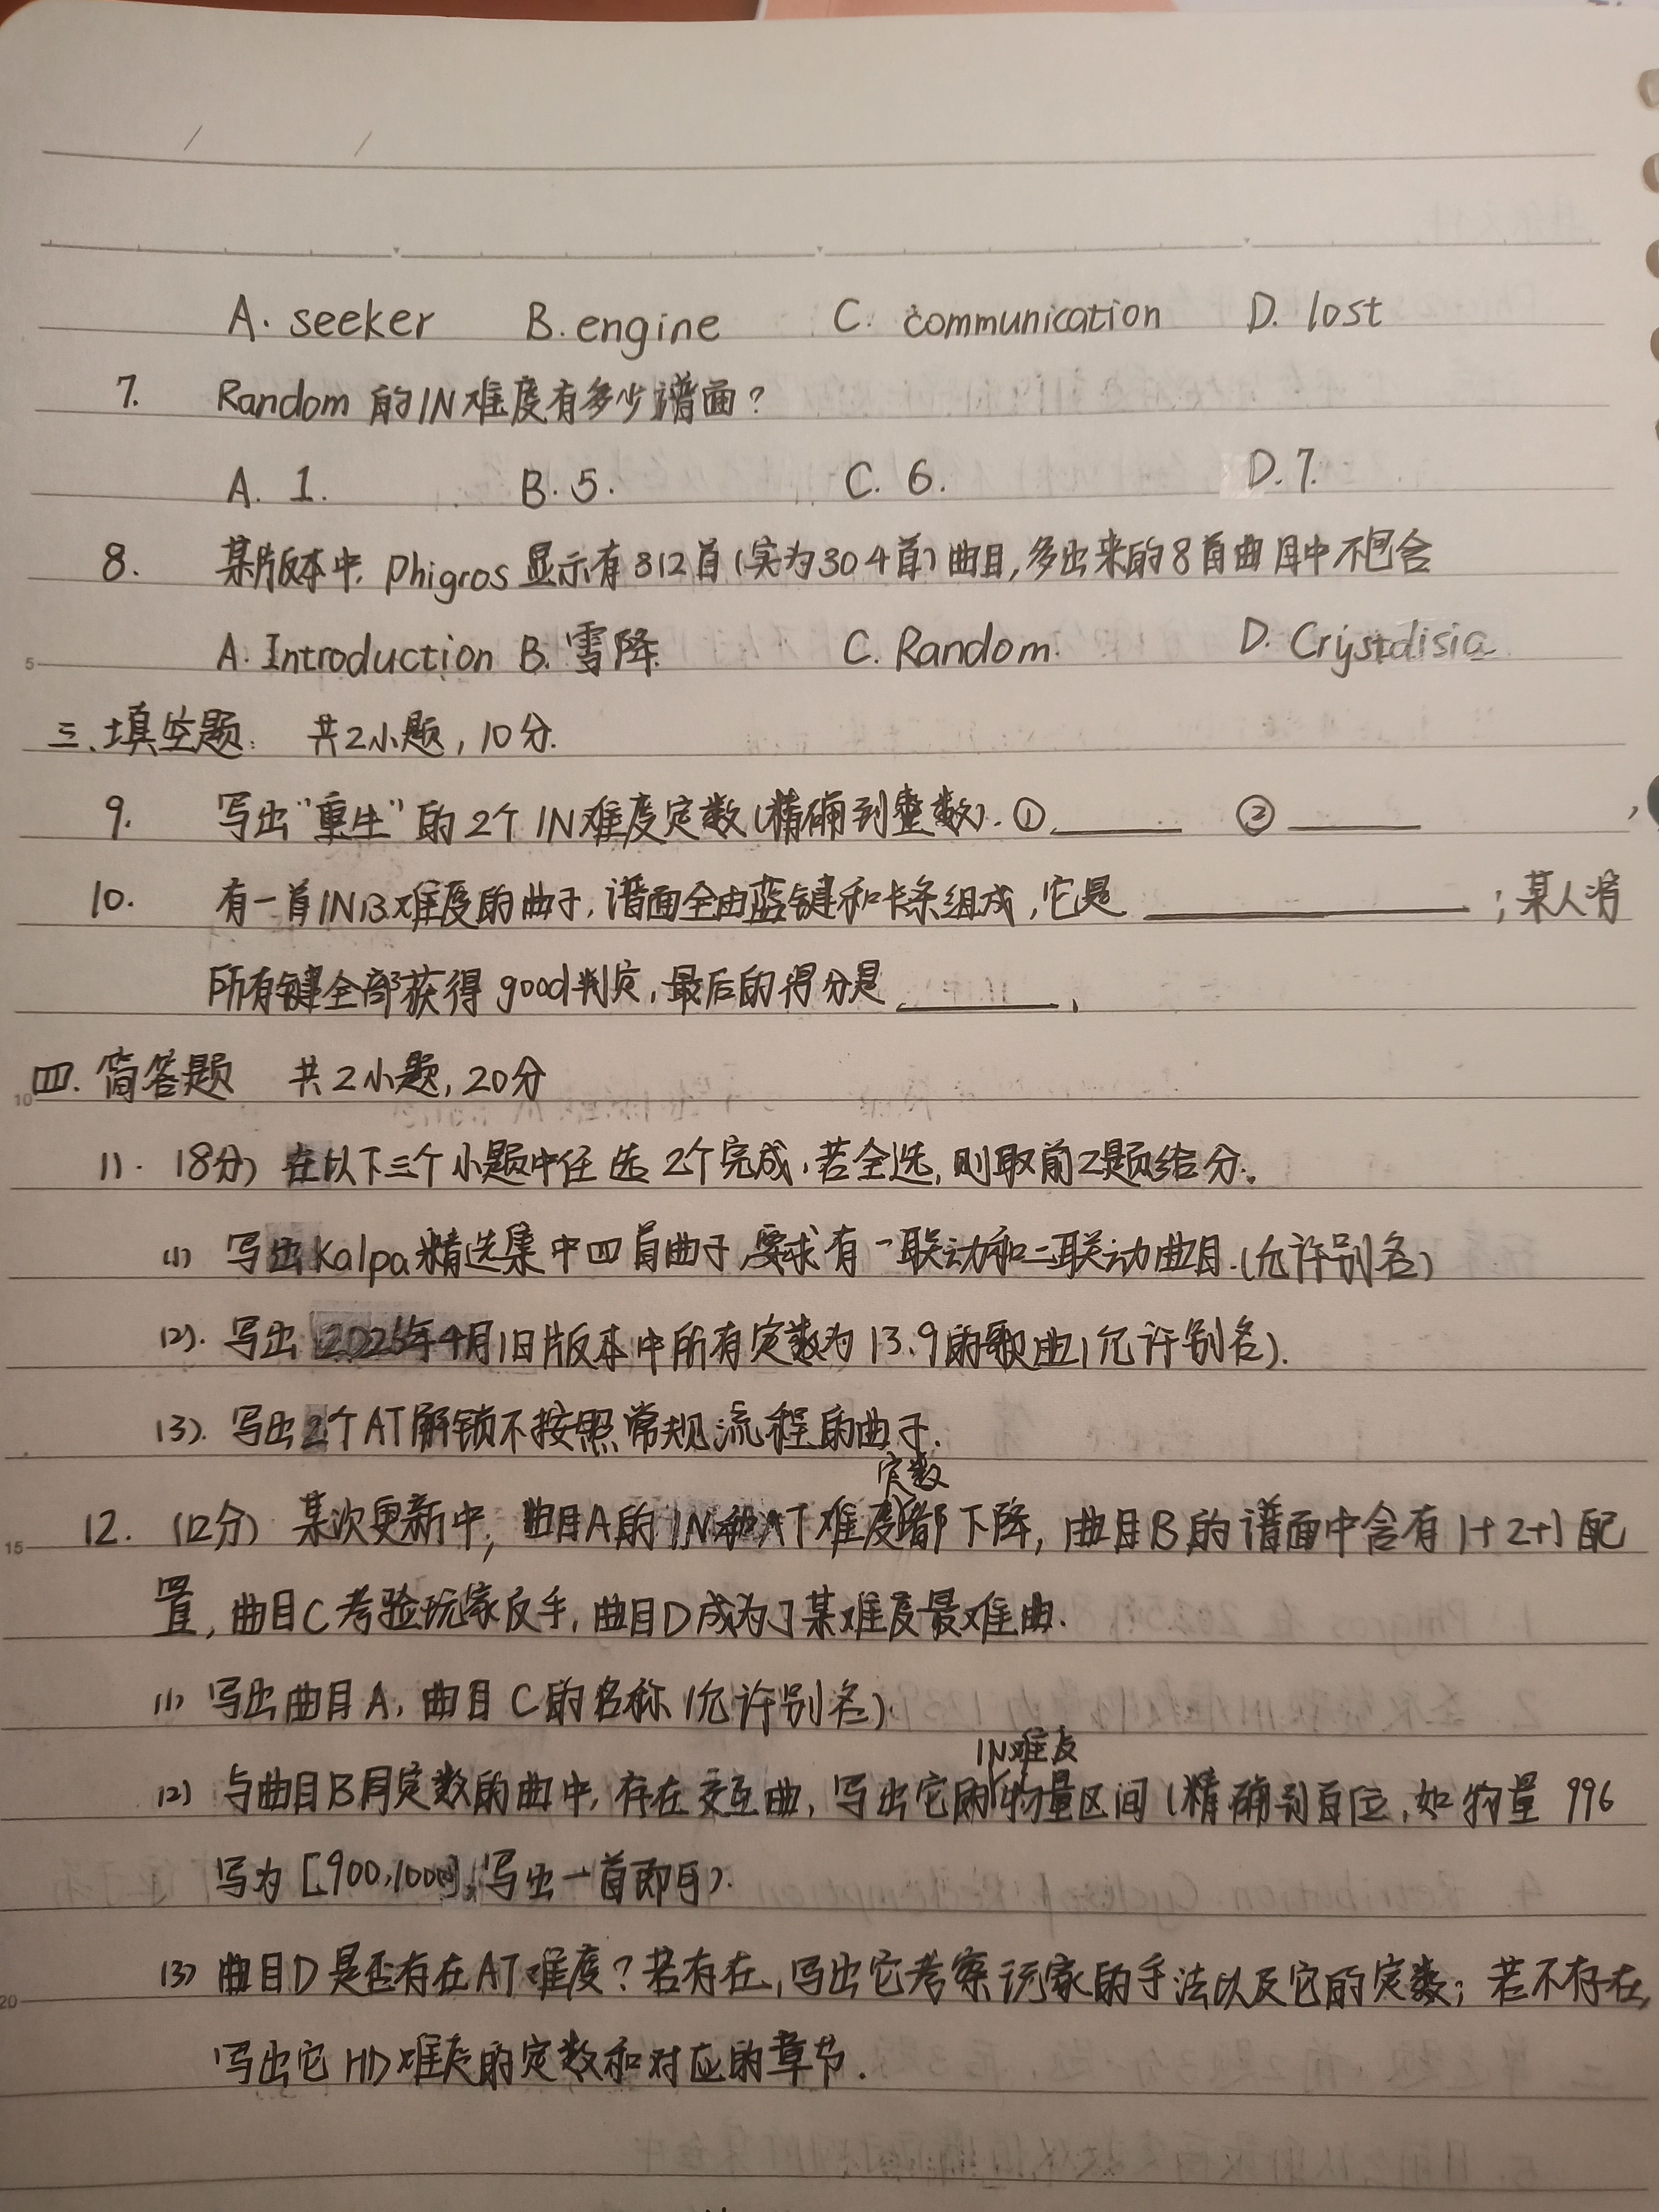 A. seeker B. engine C. communication D. lost
7. Random 的IN难度有多少谱面?
A. 1. B. 5. C. 6. D. 7.
8. 某版本中, Phigros 显示有312首(实为304首)曲目,多出来的8首曲目中不包含
A. Introduction B. 雪降. C. Random. D. Crystalisia
三、填空题: 共2小题, 10分.
9. 写出“重生”的2个IN难度定数(精确到整数). ① ②
10. 有一首IN13难度的曲子,谱面全由蓝键和长条组成,它是 ;某人将
所有键全部获得good判定,最后的得分是 .
四. 简答题 共2小题, 20分
11. (8分) 在以下三个小题中任选2个完成,若全选,则取前2题给分.
(1) 写出Kalpa精选集中四首曲子,要求有一联动和二联动曲目.(允许别名)
(2). 写出2025年4月1日版本中所有定数为13.9的歌曲(允许别名).
(3). 写出2个AT解锁不按照常规流程的曲子.
12. (12分) 某次更新中,曲目A的IN和AT难度定数都下降,曲目B的谱面中含有1+2+1配
置,曲目C考验玩家反手,曲目D成为了某难度最难曲.
(1) 写出曲目A,曲目C的名称(允许别名).
(2) 与曲目B同定数的曲中,存在交互曲,写出它的IN难度物量区间(精确到百位,如物量996
写为[900,1000],写出一首即可).
(3) 曲目D是否存在AT难度?若存在,写出它考察玩家的手法以及它的定数;若不存在,
写出它HD难度的定数和对应的章节.